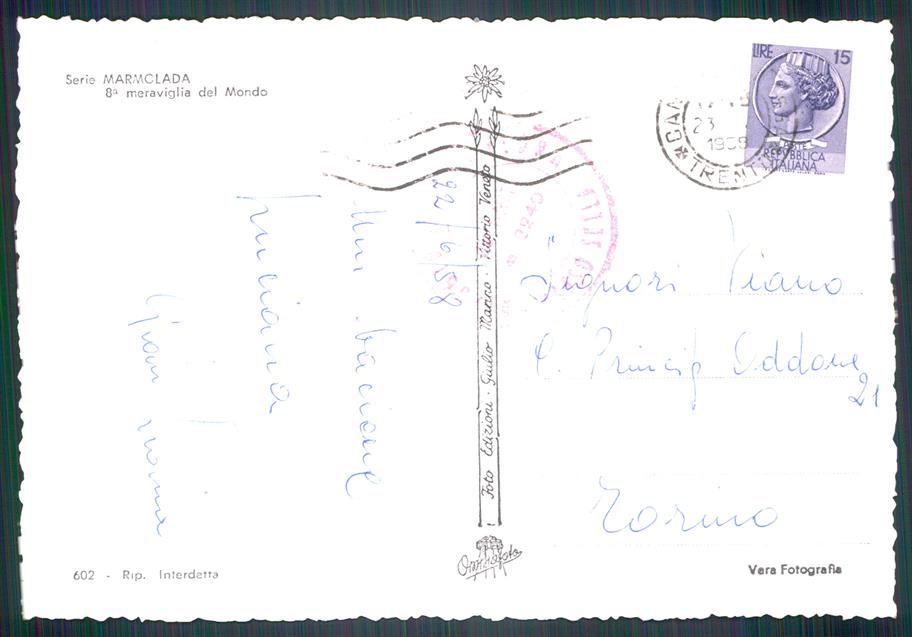 Serie MARMOLADA
8ª meraviglia del Mondo
LIRE 15
POSTE
REPUBBLICA
ITALIANA
23
TRENTO
2240
22/6/58
Un bacione
Luciana
Foto Edizioni - Giulio Marino - Vittorio Veneto
Signori Viano
C. Princip Oddone
21
Torino
602 - Rip. Interdetta
Omniafoto
Vera Fotografia